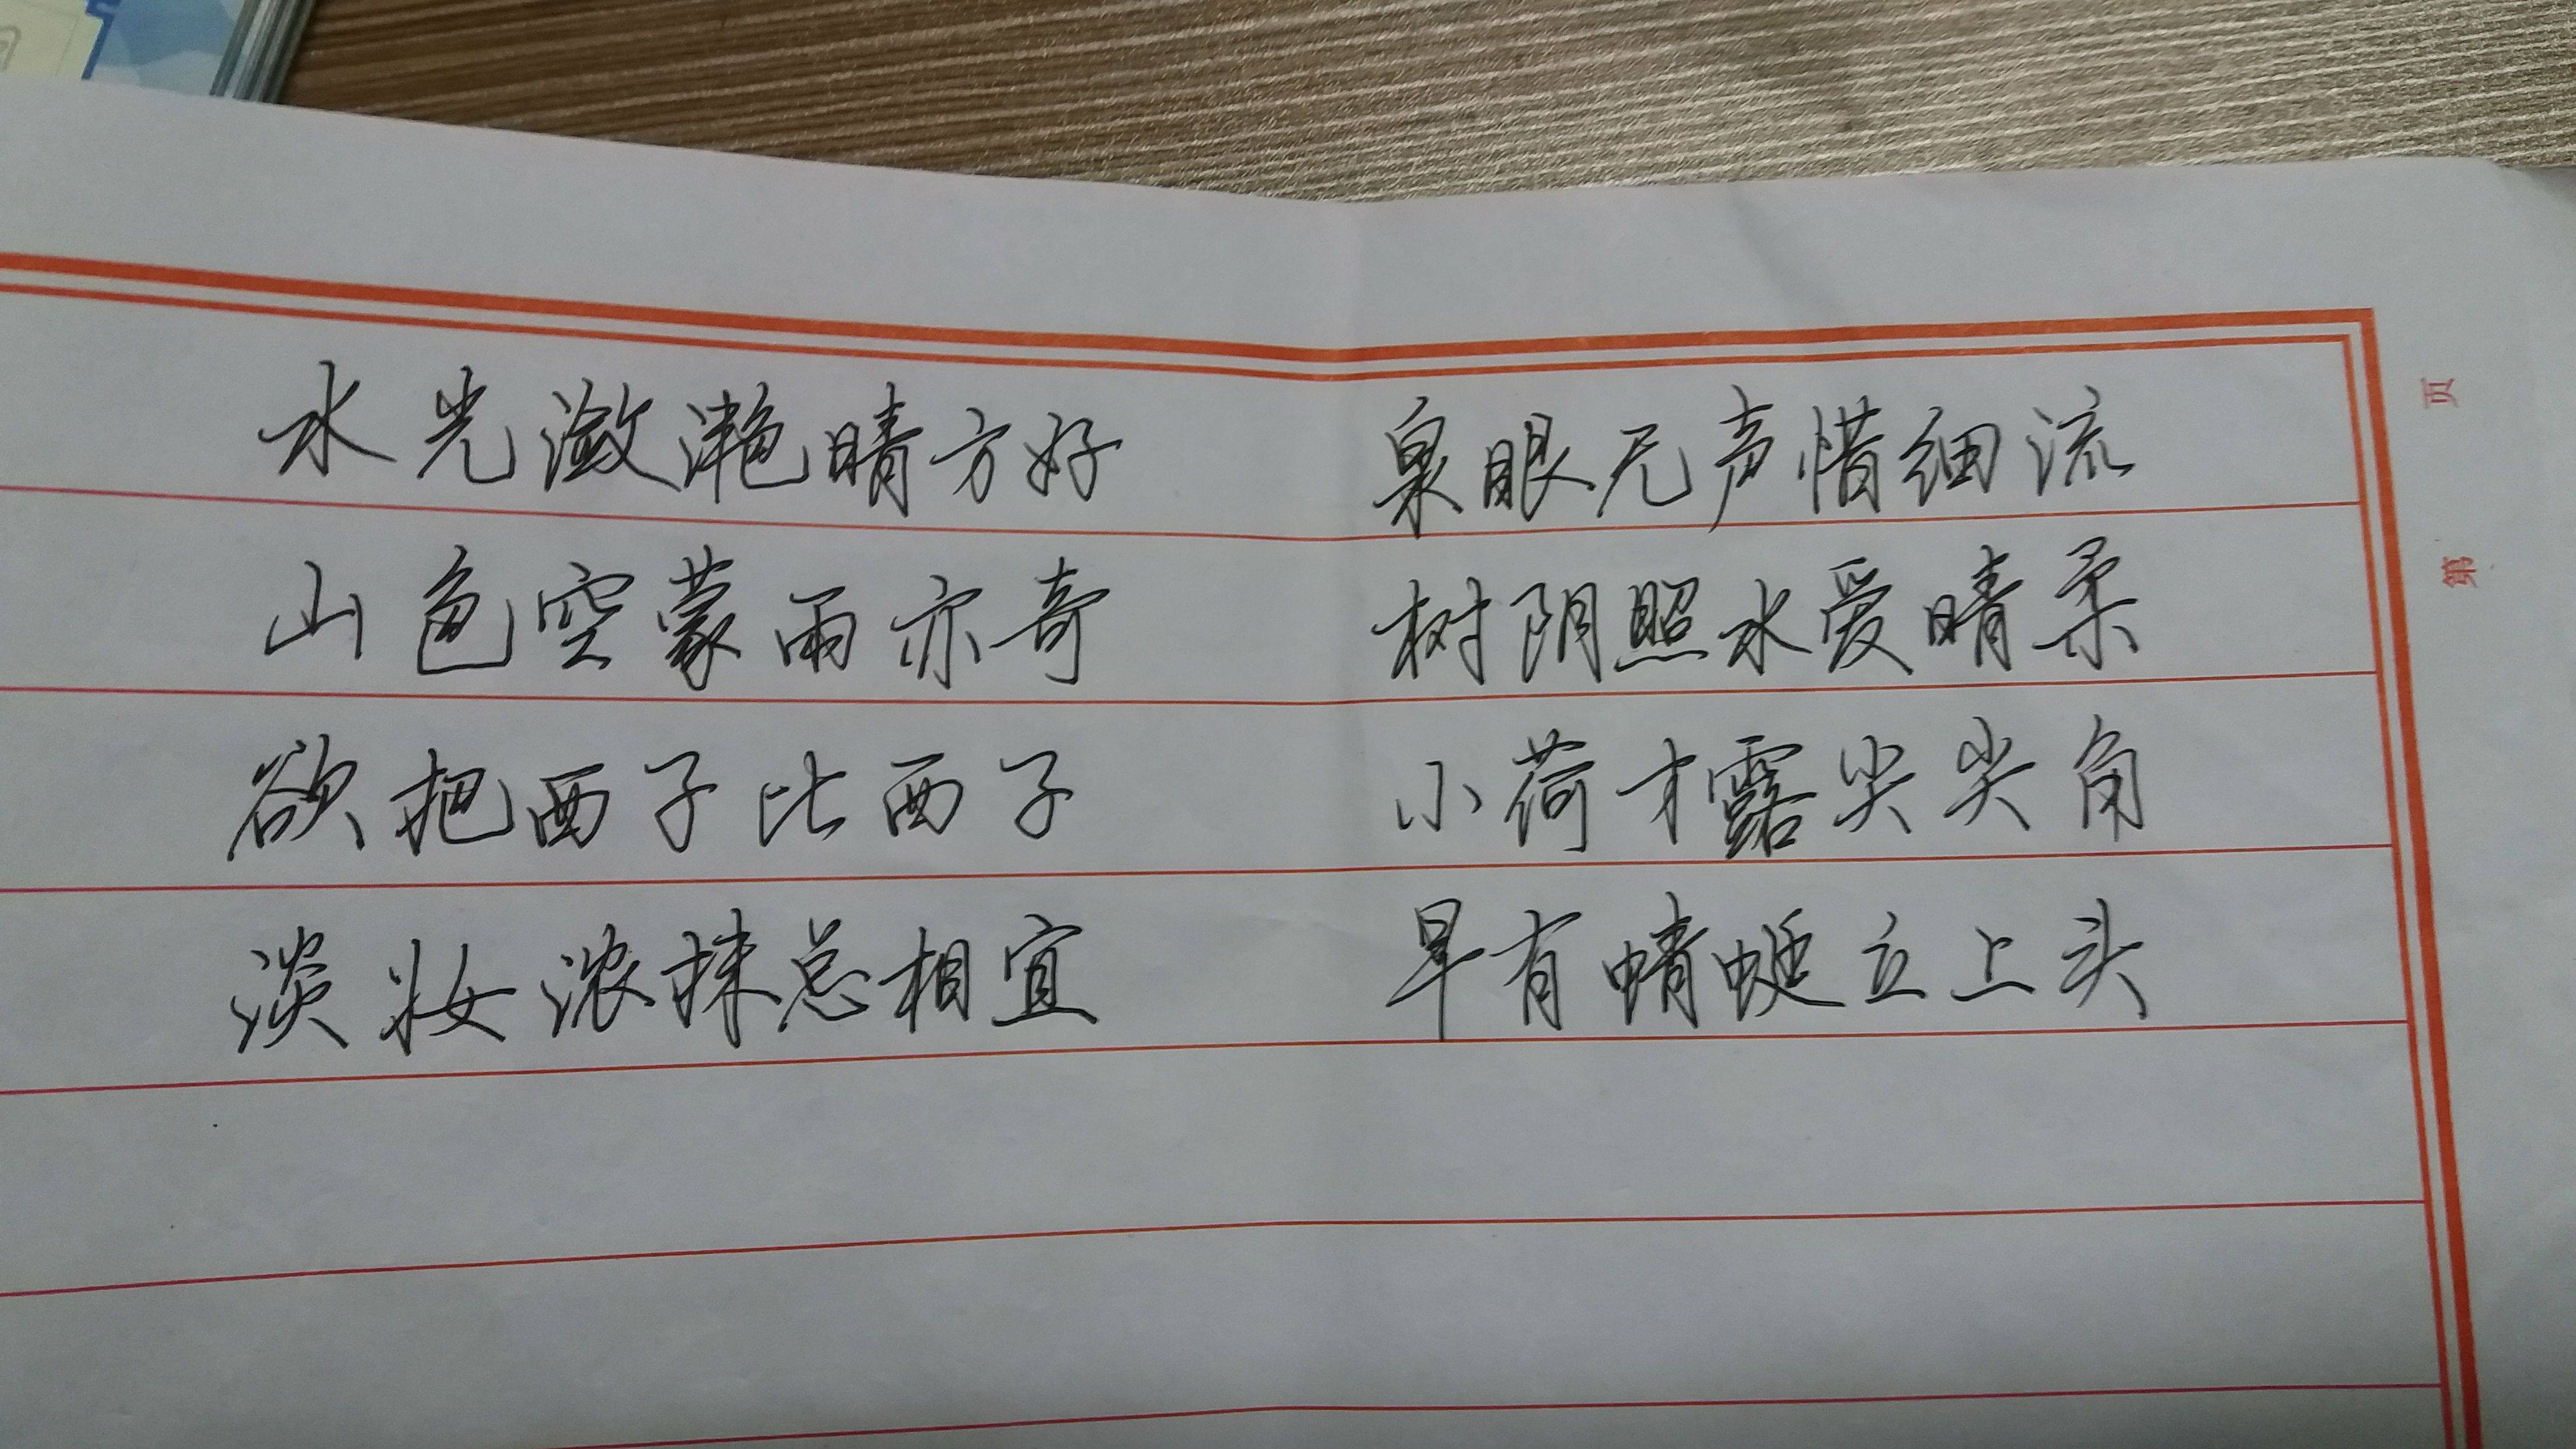 水光潋滟晴方好
山色空蒙雨亦奇
欲把西子比西子
淡妆浓抹总相宜
泉眼无声惜细流
树阴照水爱晴柔
小荷才露尖尖角
早有蜻蜓立上头
页
第